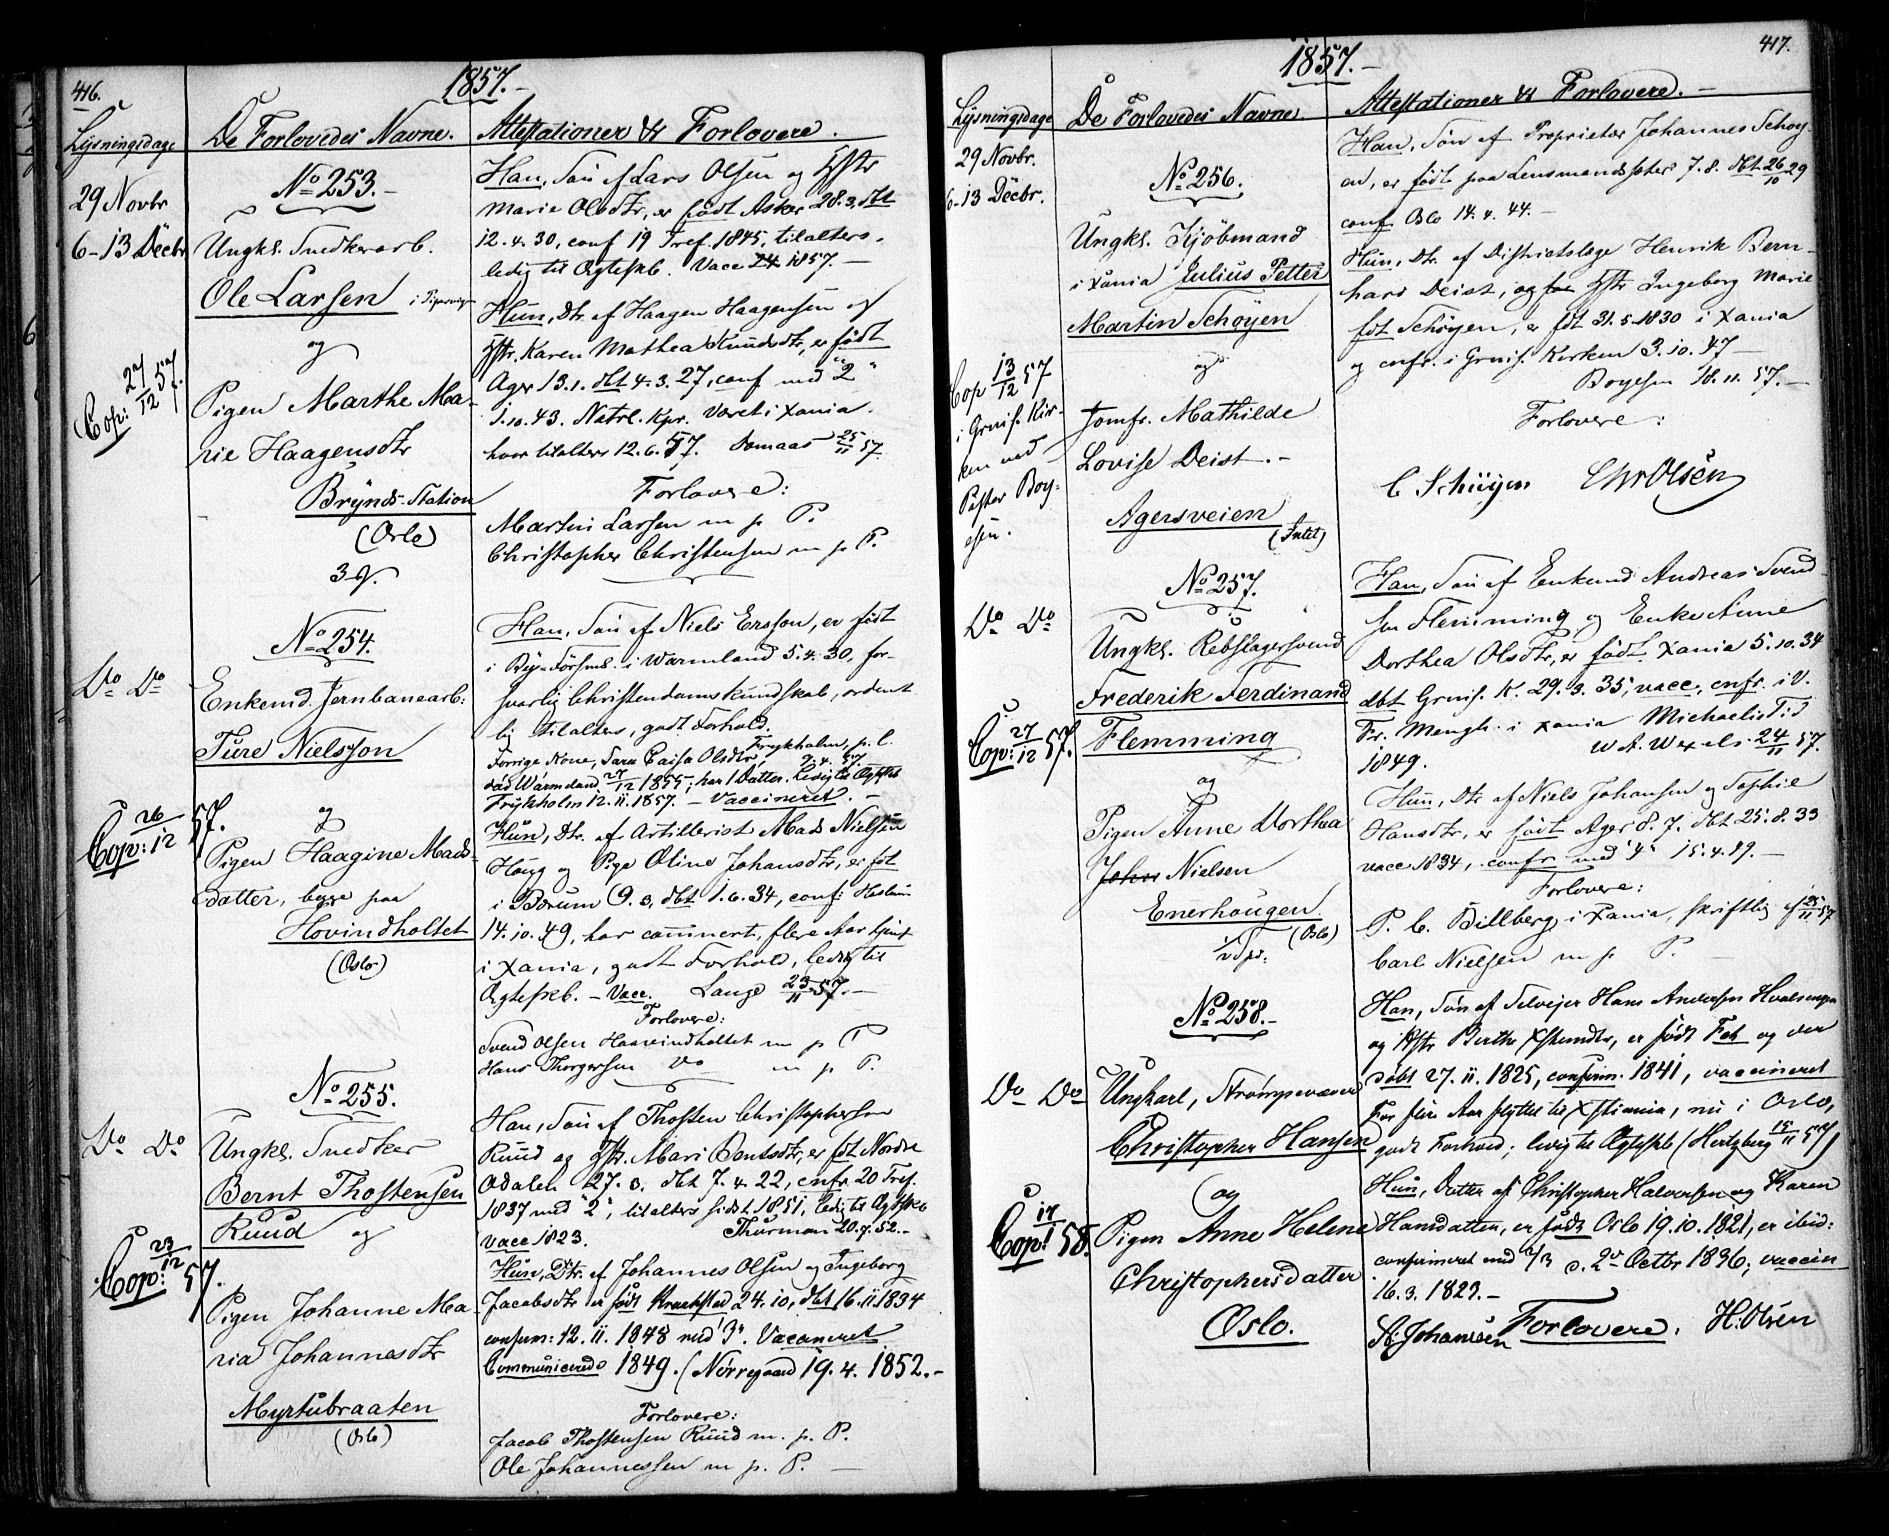 416.
1857.-
Lysningsdage
De Forlovedes Navne.
Attestationer & Forlovere.
29 Novbr
6-13 Decbr
No 253.-
Ungkl. Snedkerarb.
Ole Larsen
og
Pigen Marthe Ma-
rie Haagensdtr
Bryns-Station
(Oslo)
Cop: 27/12 57.
Han, Søn af Lars Olsen og Hstr
Marie Olsdtr, er født Asker 28.3, dbt
12.4.30, conf 19 Tref. 1845, tilalters,
ledig til Ægteskb. Vacc 24 1857.-
Hun, Dtr. af Haagen Haagensen og
Hstr. Karen Mathea Knudsdtr, er født
Ager 13.1. dbt 4.3.27, conf med "2"
1.10.43. Været i Xania
hvor tilalters 12.6.57. 25/11 57.
Forlovere:
Martin Larsen m p P.
Christopher Christensen m p P.
Do Do
No 254.
Enkemd. Jernbanearb:
Ture Nielsson
og
Pigen Haagine Mads-
datter, begge paa
Hovindholtet
(Oslo)
Cop: 26/12 57.
Han, Søn af Niels Ersson, er født
i Warmland 5.4.30, for-
svarlig Christendomskundskab, ordent
lig tilalters, godt Forhold.
Forrige Kone, Sara Caisa Olsdtr,
død Wärmeland 27/12 1855; har 1 Datter. Ledig til Ægtskb
Frykholm 12.11.1857.- Vaccineret.-
Hun, Dtr. af Artillerist Mads Nielsen
Haug og Pige Oline Johansdtr, er føt
i Bærum 9.3, dbt 1.6.34, conf: Haslum
14.10.49, har flere Aar tjent
i Xania, godt Forhold, ledig til
Ægteskb.- Vacc. Lange 23/11 57.-
Forlovere:
Svend Olsen Haavindholtet m p P
Hans Thorgersen Do m p P.
Do Do
No 255.
Ungkl. Snedker
Bernt Thostensen
Ruud og
Pigen Johanne Ma-
ria Johannesdtr
Myrtubraaten
(Oslo)
Cop: 23/12 57.
Han, Søn af Thosten Christophersen
Ruud og Hstr. Mari Bentsdtr, er fdt Nordre
Odalen 27.3. dbt 7.4.22, cnfr. 20 Tref.
1837 med "2", tilalters sidst 1851, ledig til Ægteskb
vacc 1823. Thurman 20.7.52.-
Hun, Dtr. af Johannes Olsen og Ingeborg
Jacobsdtr er født Kraakstad 24.10, dbt 16.11.1834
confirm: 12.11.1848 med "3". Vaccineret
Communicerede 1849. (Nørregaard 19.4.1852.-
Forlovere:
Jacob Thostensen Ruud m. p. P.
Ole Johannessen m p. P.-
417.
1857.-
Lysningsdage
De Forlovedes Navne.
Attestationer & Forlovere.-
29 Novbr.
6-13 Decbr.
No 256.
Ungkl. Kjöbmand
i Xania Julius Petter
Martin Schøyen
og
Jomfr. Mathilde
Lovise Deist.-
Agersveien
(Intet)
Cop 13/12 57
i Grnis. Kir-
ken ved
Pastor Boy-
esen.
Han, Søn af Proprietær Johannes Schøy-
en, er født paa Lensmandsseter 7.8. dbt 26/10 29
conf Oslo 14.4.44.-
Hun, Dtr. af Districtslæge Henrik Bern-
hard Deist, og Hstr Ingeborg Marie
fdt Schøyen, er fdt 31.5.1830 i Xania
og cnfr. i Grnis. Kirken 3.10.47-
Boyesen 18.11.57.-
Forlovere:
C Schüyen Chr Olsen
Do Do
No 257.
Ungkl. Rebslagersvend
Frederik Ferdinand
Flemming
og
Pigen Anne Dorthea
Nielsen
Enerhougen
(Oslo)
Cop: 27/12 57.
Han, Søn af Enkemd Andreas Svend-
sen Flemming og Enke Anne
Dorthea Olsdtr, er født Xania 5.10.34
dbt Grnis. K. 29.3.35, vacc, cnfr. i V.
Fr. Mengh. i Xania Michaelis Tid
1849. W A. Wexels 24/11 57.
Hun, Dtr af Niels Johansen og Sophie
Hansdtr, er født Ager 8.7. dbt 25.8.33
vacc 1834, confr med "4" 15.4.49.-
Forlovere:
P. C. Billberg i Xania, skriftlig af 25/11 57
Carl Nielsen m p P.-
Do Do
No 258.-
Ungkarl, Strømpevæver
Christopher Hansen
og
Pigen Anne Helene
Christophersdatter
Oslo.
Cop: 17/1 58.
Han, Søn af Selveier Hans Andersen
og Hstr Berthe er født Fet og der
døbt 27.11.1825, confirm. 1841, vaccineret
For fire Aar flyttet til Xstiania, nu i Oslo,
godt Forhold; ledig til Ægteskb (Hertzberg 15/11 57)
Hun, Datter af Christopher Halvorsen og Karen
Hansdatter, er født Oslo 19.10.1821, er ibid:
confirmeret med d. 2d Octbr 1836; vaccin
16.3.1823.-
Forlovere.
A: Johansen H: Olsen